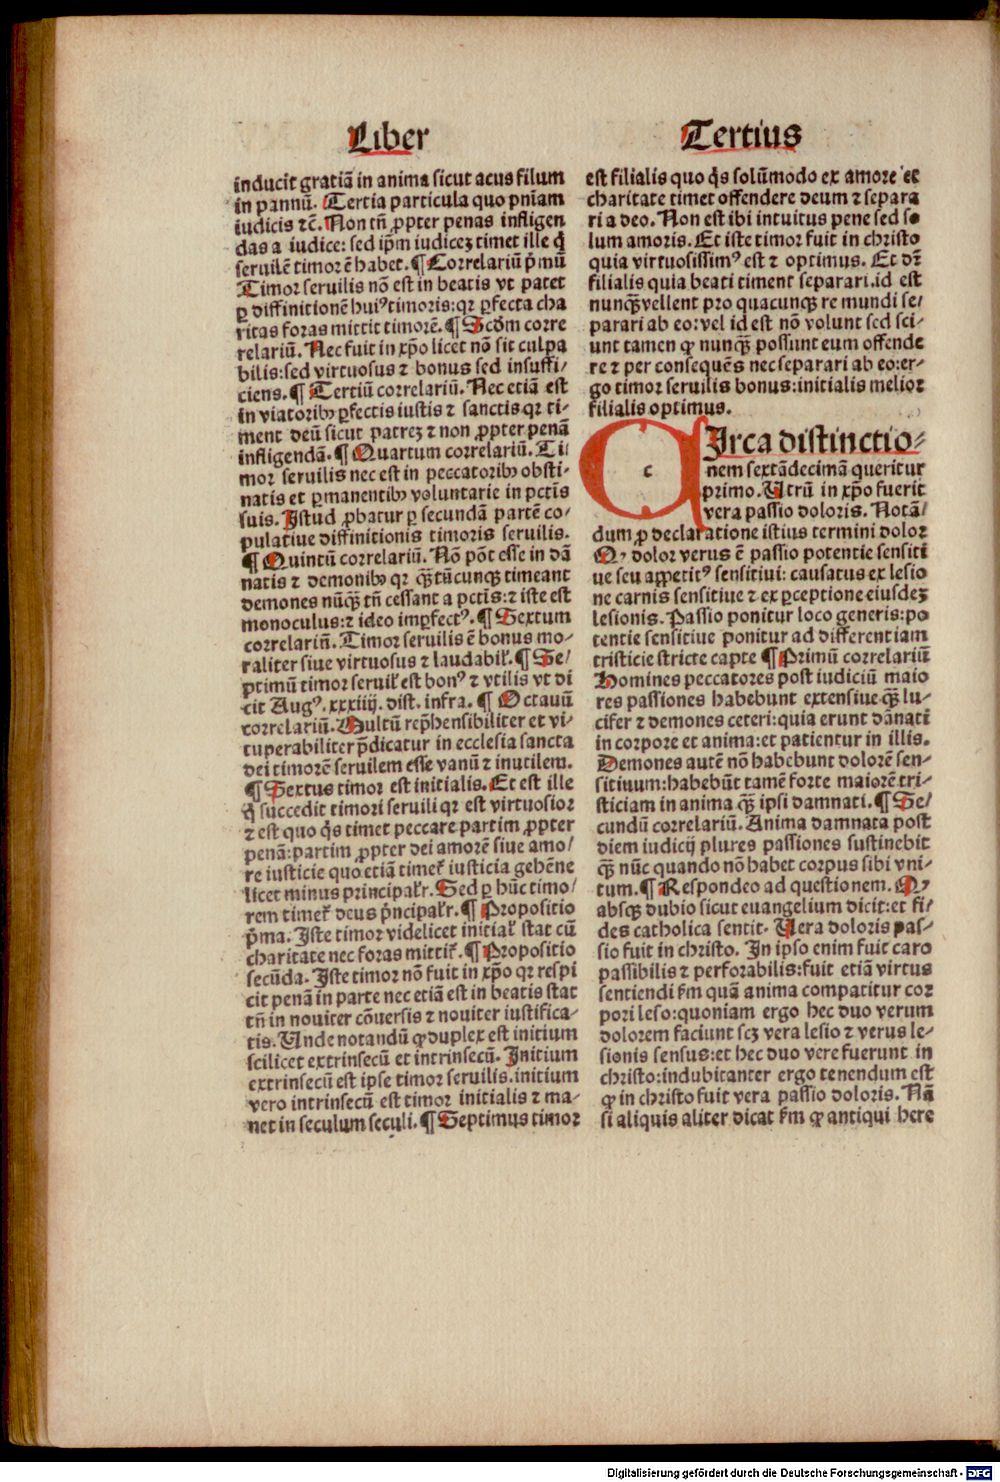 Liber
Tertius
inducit gratiā in anima sicut acus filum
in pannū. Tertia particula quo pnīam
iudicis ⁊c̄. Non tn̄ ꝓpter penas infligen
das a iudice: sed ip̄m iudicez timet ille q̇
seruilē timorē habet. ¶ Correlariū p̄mū
Timor seruilis nō est in beatis vt patet
ꝑ diffinitionē huiꝰ timoris: qꝛ ꝑfecta cha
ritas foras mittit timorē. ¶ Scd̄m corre
relariū. Nec fuit in xp̄o licet nō sit culpa
bilis: sed virtuosus ⁊ bonus sed insuffi⸗
ciens. ¶ Tertiū correlariū. Nec etiā est
in viatoribꝫ ꝑfectis iustis ⁊ sanctis qꝛ ti⸗
ment deū sicut patrez ⁊ non ꝓpter penā
infligendā. ¶ Quartum correlariū. Ti⸗
mor seruilis nec est in peccatoribꝫ obsti⸗
natis et ꝑmanentibꝫ voluntarie in pctīs
suis. Istud ꝓbatur ꝑ secundā partē co⸗
pulatiue diffinitionis timoris seruilis.
¶ Quintū correlariū. Nō pōt esse in dā
natis ⁊ demonibꝫ qꝛ qꝫ̄tūcunqꝫ timeant
demones nūqꝫ̄ tn̄ cessant a pctīs: ⁊ iste est
monoculus: ⁊ ideo imꝑfectꝰ. ¶ Sextum
correlariū. Timor seruilis ē bonus mo⸗
raliter siue virtuosus ⁊ laudabił. ¶ Se⸗
ptimū timor seruił est bonꝰ ⁊ vtilis vt di
cit Augꝰ. xxxiiij. dist. infra. ¶ Octauū
correlariū. Multū rep̄hensibiliter et vi⸗
tuperabiliter p̄dicatur in ecclesia sancta
dei timorē seruilem esse vanū ⁊ inutilem.
¶ Sextus timor est initialis. Et est ille
q̇ succedit timori seruili qꝛ est virtuosior
⁊ est quo q̇s timet peccare partim ꝓpter
penā: partim ꝓpter dei amorē siue amo⸗
re iusticie quo etiā timet̄ iusticia gehēne
licet minus principałr. Sed ꝑ hūc timo⸗
rem timet̄ deus p̄ncipałr. ¶ Propositio
p̄ma. Iste timor videlicet initiał stat cū
charitate nec foras mittit̄. ¶ Propositio
secūda. Iste timor nō fuit in xp̄o qꝛ respi
cit penā in parte nec etiā est in beatis stat
tn̄ in nouiter cōuersis ⁊ nouiter iustifica⸗
tis. Unde notandū ꝙ duplex est initium
scilicet extrinsecū et intrinsecū. Initium
extrinsecū est ipse timor seruilis. initium
vero intrinsecū est timor initialis ⁊ ma⸗
net in seculum seculi. ¶ Septimus timor
est filialis quo q̇s solūmodo ex amore ee
charitate timet offendere deum ⁊ separa
ri a deo. Non est ibi intuitus pene sed so
lum amoris. Et iste timor fuit in christo
quia virtuosissimꝰ est ⁊ optimus. Et dr̄
filialis quia beati timent separari. id est
nunqꝫ̄ vellent pro quacunqꝫ re mundi se⸗
parari ab eo: vel id est nō volunt sed sci⸗
unt tamen ꝙ nunqꝫ̄ possunt eum offende
re ⁊ per consequēs nec separari ab eo: er⸗
go timor seruilis bonus: initialis melior
filialis optimus.
c
CIrca distinctio⸗
nem sextādecimā queritur
primo. Utrū in xp̄o fuerit
vera passio doloris. Notā⸗
dum ꝓ declaratione istius termini dolor
Qꝫ dolor verus ē passio potentie sensiti
ue seu appetitꝰ sensitiui: causatus ex lesio
ne carnis sensitiue ⁊ ex ꝑceptione eiusdeꝫ
lesionis. Passio ponitur loco generis: po
tentie sensitiue ponitur ad differentiam
tristicie stricte capte ¶ Primū correlariū
Homines peccatores post iudiciū maio
res passiones habebunt extensiue qꝫ̄ lu⸗
cifer ⁊ demones ceteri: quia erunt dānati
in corpore et anima: et patientur in illis.
Demones autē nō habebunt dolorē sen⸗
sitiuum: habebūt tamē forte maiorē tri⸗
sticiam in anima qꝫ̄ ipsi damnati. ¶ Se⸗
cundū correlariū. Anima damnata post
diem iudicij plures passiones sustinebit
qꝫ̄ nūc quando nō habet corpus sibi vni⸗
tum. ¶ Respondeo ad questionem. Qꝫ
absqꝫ dubio sicut euangelium dicit: et fi⸗
des catholica sentit. Uera doloris pas⸗
sio fuit in christo. In ipso enim fuit caro
passibilis ⁊ perforabilis: fuit etiā virtus
sentiendi ẜm quā anima compatitur cor
pori leso: quoniam ergo hec duo verum
dolorem faciunt scꝫ vera lesio ⁊ verus le⸗
sionis sensus: et hec duo vere fuerunt in
christo: indubitanter ergo tenendum est
ꝙ in christo fuit vera passio doloris. Nā
si aliquis aliter dicat ẜm ꝙ antiqui here
Digitalisierung gefördert durch die Deutsche Forschungsgemeinschaft - DFG